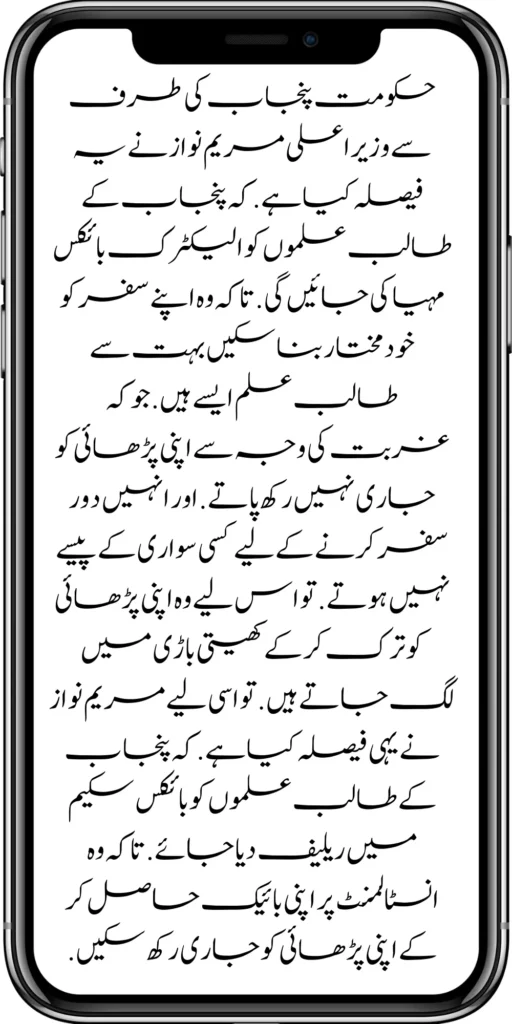 حکومت پنجاب کی طرف
سے وزیراعلی مریم نواز نے یہ
فیصلہ کیا ہے. کہ پنجاب کے
طالب علموں کو الیکٹرک بائکس
مہیا کی جائیں گی. تا کہ وہ اپنے سفر کو
خود مختار بنا سکیں بہت سے
طالب علم ایسے ہیں. جو کہ
غربت کی وجہ سے اپنی پڑھائی کو
جاری نہیں رکھ پاتے. اور انہیں دور
سفر کرنے کے لیے کسی سواری کے پیسے
نہیں ہوتے. تو اس لیے وہ اپنی پڑھائی
کو ترک کر کے کھیتی باڑی میں
لگ جاتے ہیں. تو اسی لیے مریم نواز
نے یہی فیصلہ کیا ہے. کہ پنجاب
کے طالب علموں کو بائکس سکیم
میں ریلیف دیا جائے. تا کہ وہ
انسٹالمنٹ پر اپنی بائیک حاصل کر
کے اپنی پڑھائی کو جاری رکھ سکیں.